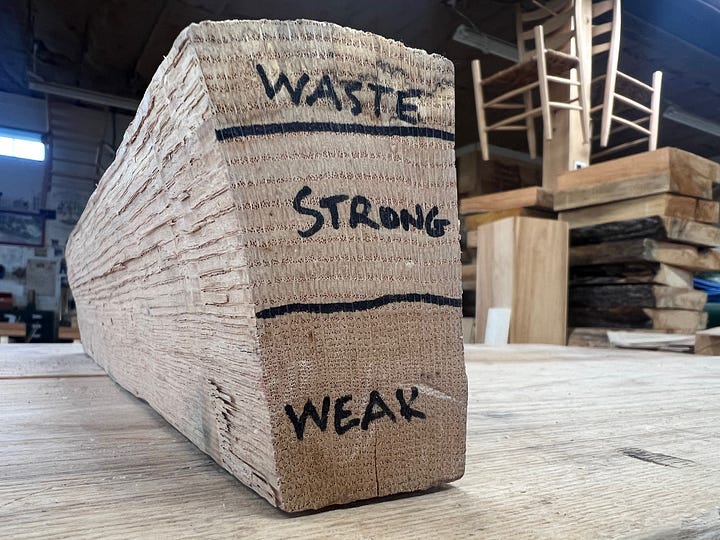 WASTE
STRONG
WEAK